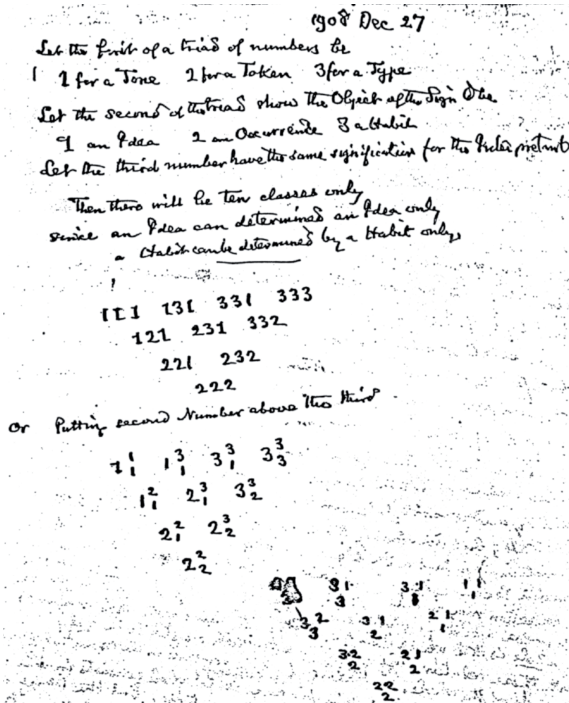 1908 Dec 27
Let the first of a triad of numbers be
1 for a Tone 2 for a Token 3 for a Type
Let the second of the triad show the Object of the Sign to be
1 an Idea 2 an Occurrence 3 a Habit
Let the third number have the same signification for the Interpretant
Then there will be ten classes only
since an Idea can determined an Idea only
a Habit can be determined by a Habit only,
111 131 331 333
121 231 332
221 232
222
Or Putting second Number above the third
1 1 1 1 3 1 3 3 1 3 3 3
1 2 1 2 3 1 3 3 2
2 2 1 2 3 2
2 2 2
31 31 11
3 1
32 31 21
3 2 1
32 21
2 2
22
2